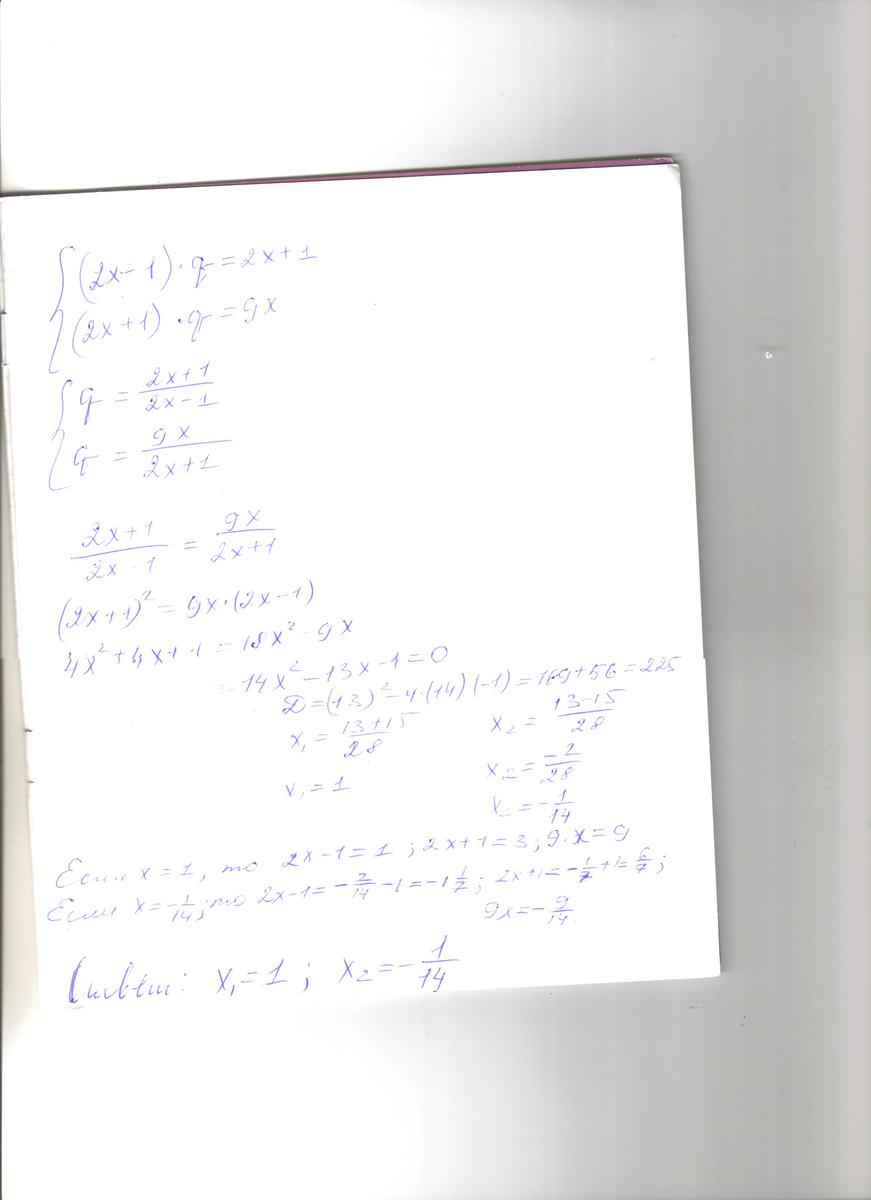 (2x-1)·q=2x+1
(2x+1)·q=9x
q=\frac{2x+1}{2x-1}
q=\frac{9x}{2x+1}
\frac{2x+1}{2x-1}=\frac{9x}{2x+1}
(2x+1)²=9x·(2x-1)
4x²+4x+1=18x²-9x
=14x²-13x-1=0
D=(13)²-4·(14)(-1)=169+56=225
x₁=\frac{13+15}{28} x₂=\frac{13-15}{28}
x₂=\frac{-2}{28}
x₁=1
x₂=-\frac{1}{14}
Если x=1, то 2x-1=1; 2x+1=3; 9·x=9
Если x=-\frac{1}{14}; то 2x-1=-\frac{2}{14}-1=-1\frac{1}{7}; 2x+1=-\frac{1}{7}+1=\frac{6}{7};
9x=-\frac{9}{14}
Ответ: x₁=1; x₂=-\frac{1}{14}